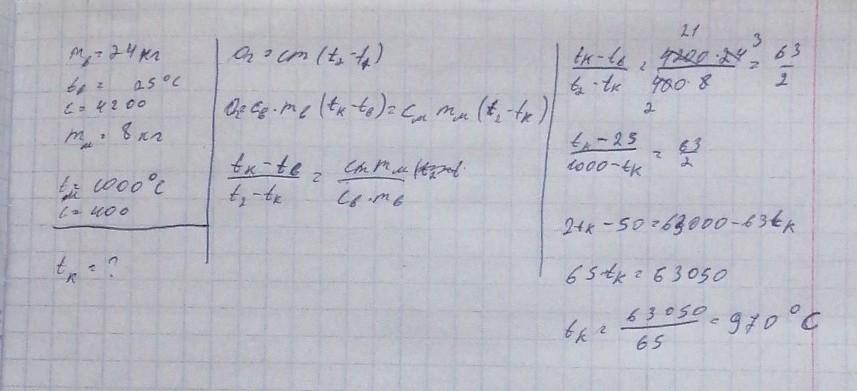 m в = 24 кг
t в = 25 °C
c = 4200
m м = 8 кг
t м = 1000 °C
c = 400
t к = ?
Q = cm (t₂ - t₁)
Q = c в · m в (t к - t в) = c м m м (t₂ - t к)
t к - t в / t₂ - t к = c м m м / c в · m в
t к - t в / t₂ - t к = 4200 · 24 / 400 · 8 = 63 / 2
21
3
2
t к - 25 / 1000 - t к = 63 / 2
2t к - 50 = 63000 - 63t к
65 t к = 63050
t к = 63050 / 65 = 970 °C